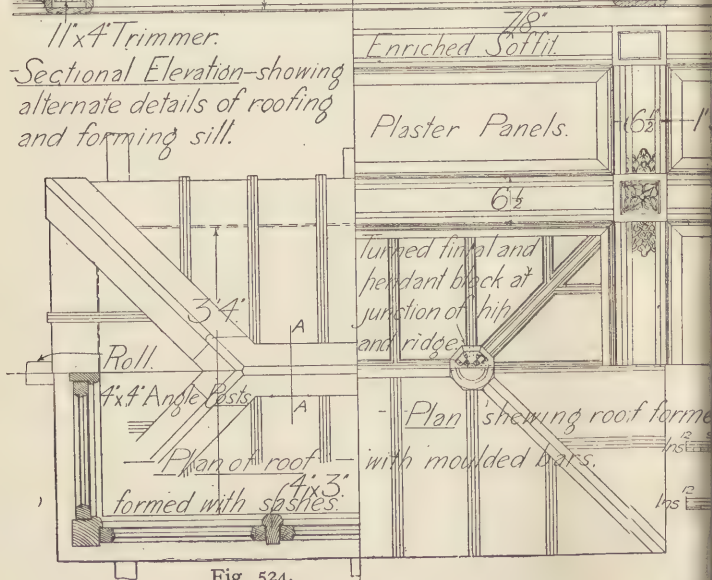 11"x4" Trimmer.
-Sectional Elevation-showing
alternate details of roofing
and forming sill.
7/8"
Enriched Soffit.
Plaster Panels.
6½
1'
6½
Turned finial and
pendant block at
junction of hip
and ridge.
3'4"
A
A
Roll.
4"x4" Angle Posts
Plan of roof
formed with sashes.
4"x3"
- Plan shewing roof forme
with moulded bars.
Ins 12
Ins 12
Fig. 524.